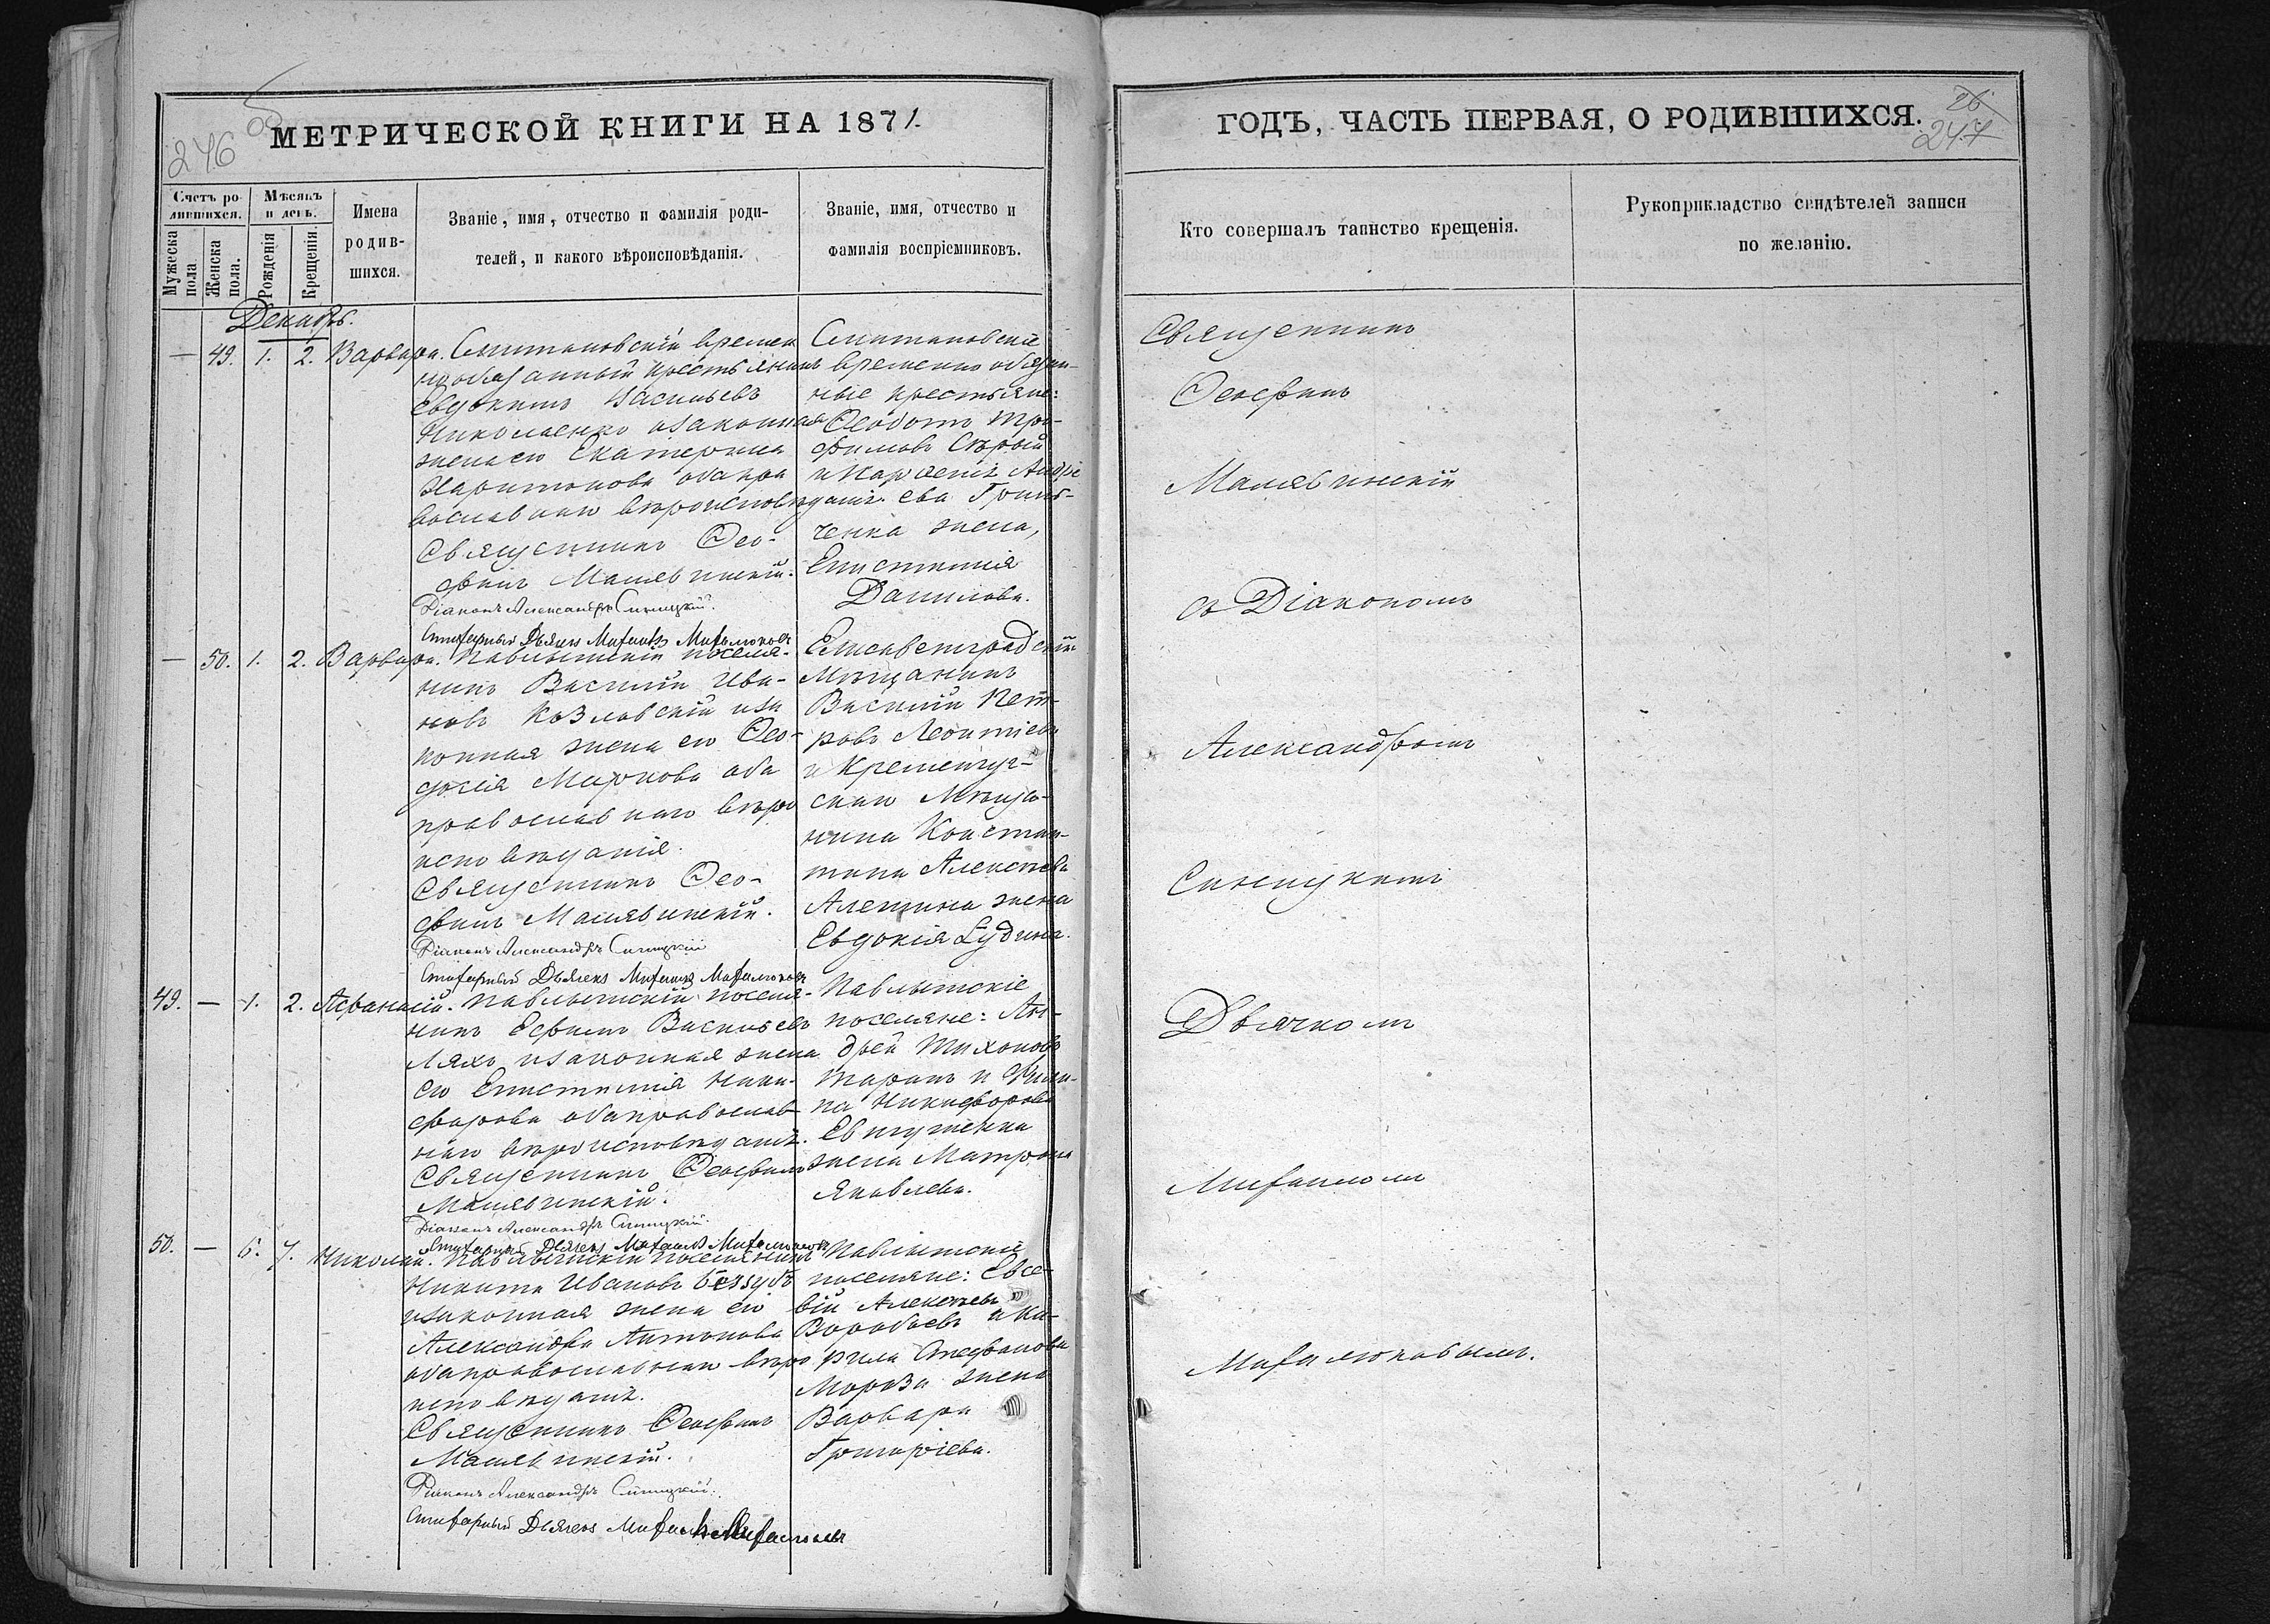 246 об
МЕТРИЧЕСКОЙ КНИГИ НА 1871.
Счетъ ро-
дившихся.
Мѣсяцъ
и день.
Мужеска
пола
Женска
пола.
Рожденія
Крещенія.
Имена
родив-
шихся.
Званіе, имя, отчество и фамилія роди-
телей, и какого вѣроисповѣданія.
Званіе, имя, отчество и
фамилія воспріемниковъ.
Декабрь.
— 49. 1. 2. Варвара.
времен
нообязанный крестьянинъ
Евдокимъ Васильевъ
Николаенко и законная
жена его Екатерина
Харитонова оба пра
вославнаго вѣроисповѣданія.
Священникъ Ѳео-
филъ
Діаконъ Александръ Синицкій.
Стихарный Дьячекъ Михаилъ Михалюковъ
временно обязан-
ные крестьяне:
Ѳеодотъ Тро-
фимовъ Сѣрый
и Андре
ева Грин-
ченка жена,
Епистимія
Данилова.
— 50. 1. 2. Варвара.
Павлышскій поселя-
нинъ Василій Ива-
новъ Козловскій и за
конная жена его Ѳео-
досія Маркова оба
православнаго вѣро
исповѣданія.
Священникъ Ѳео-
филъ
Діаконъ Александръ Синицкій
Стихарный Дьячекъ Михаилъ Михалюковъ
Елисаветградскій
Мѣщанинъ
Василій Пет-
ровъ Леонтіевъ
и Кременчуг-
скаго Мѣща-
нина Констан-
тина Алексѣева
Алешина жена
Евдокія
49. — 1. 2. Афанасій.
Павлышскій поселя-
нинъ Ефимъ Васильевъ
Ляхъ и законная жена
его Епистимія Ники-
форова оба православ-
наго вѣроисповѣданія.
Священникъ Ѳеофилъ
Діаконъ Александръ Синицкій.
Стихарный Дьячекъ Михаилъ Михалюковъ
Павлышскіе
поселяне: Ан-
дрей Тихоновъ
Таранъ и Фили-
па Никифорова
Евтушенка
жена Матрона
Яковлева.
50. — 6. 7. Николай.
Павлышскій поселянинъ
Никита Ивановъ Беззубъ
и законная жена его
Александра Антонова
оба православнаго вѣро
исповѣданія.
Священникъ Ѳеофилъ
Діаконъ Александръ Синицкій.
Стихарный Дьячекъ Михаилъ Михалюковъ
Павлышскіе
поселяне: Евсе-
вій Алексѣевъ
Воробьевъ и Ки-
рила Стефанова
Мороза жена
Варвара
Григоріева.
ГОДЪ, ЧАСТЬ ПЕРВАЯ, О РОДИВШИХСЯ.
26
247
Кто совершалъ таинство крещенія.
Рукоприкладство свидѣтелей записи
по желанію.
Священникъ
Ѳеофилъ
съ Діакономъ
Александромъ
Синицкимъ
Дьячкомъ
Михаиломъ
Михалюковымъ.